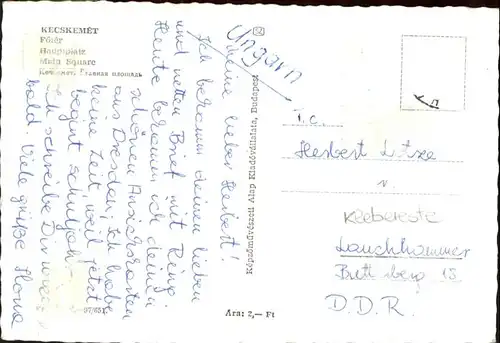 KECSKEMÉT
Főtér
Hauptplatz
Main Square
Кечкемет. Главная площадь
Ungarn
Meine lieber Herbert!
Ich bekamm deinen lieben
und netten Brief mit Ring.
Heute bekamm ich deinen
schönen Ansichtskarten
aus Dresden. Ich habe
keine Zeit, weil jetzt
begint schuljah-
Ich schreibe Dir
bald. Viele grüße Ilona
Képzőművészeti Alap Kiadóvállalata, Budapest
Ára: 2,— Ft
T. C.
Herbert
Klebereste
Lauchhammer
15
D.D.R.